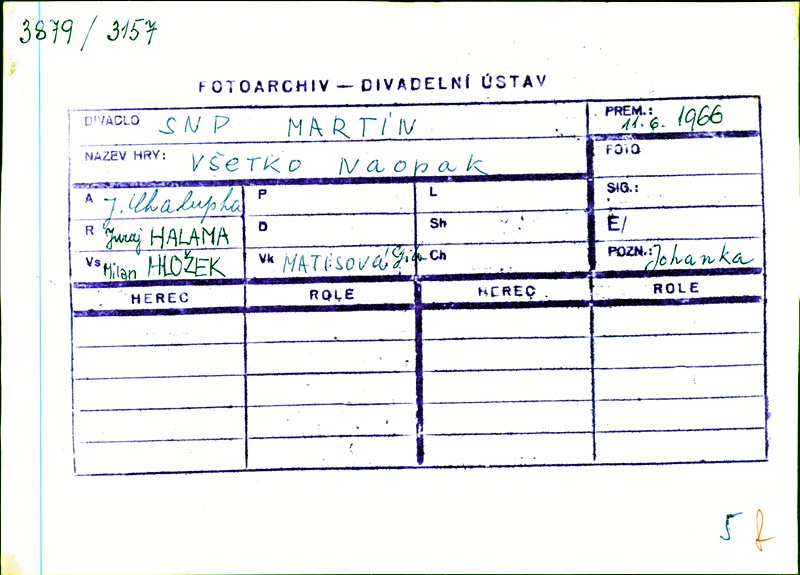 3879 / 3157
FOTOARCHIV — DIVADELNÍ ÚSTAV
DIVADLO SNP MARTÍN
PREM.: 11.6. 1966
NÁZEV HRY: VŠETKO NAOPAK
FOTO
A J. Chalupka P L SIG.:
R Juraj HALAMA D Sh Č/
Vs Milan HLOŽEK Vk MATISOVÁ Ch POZN.: Johanka
HEREC ROLE HEREC ROLE
5